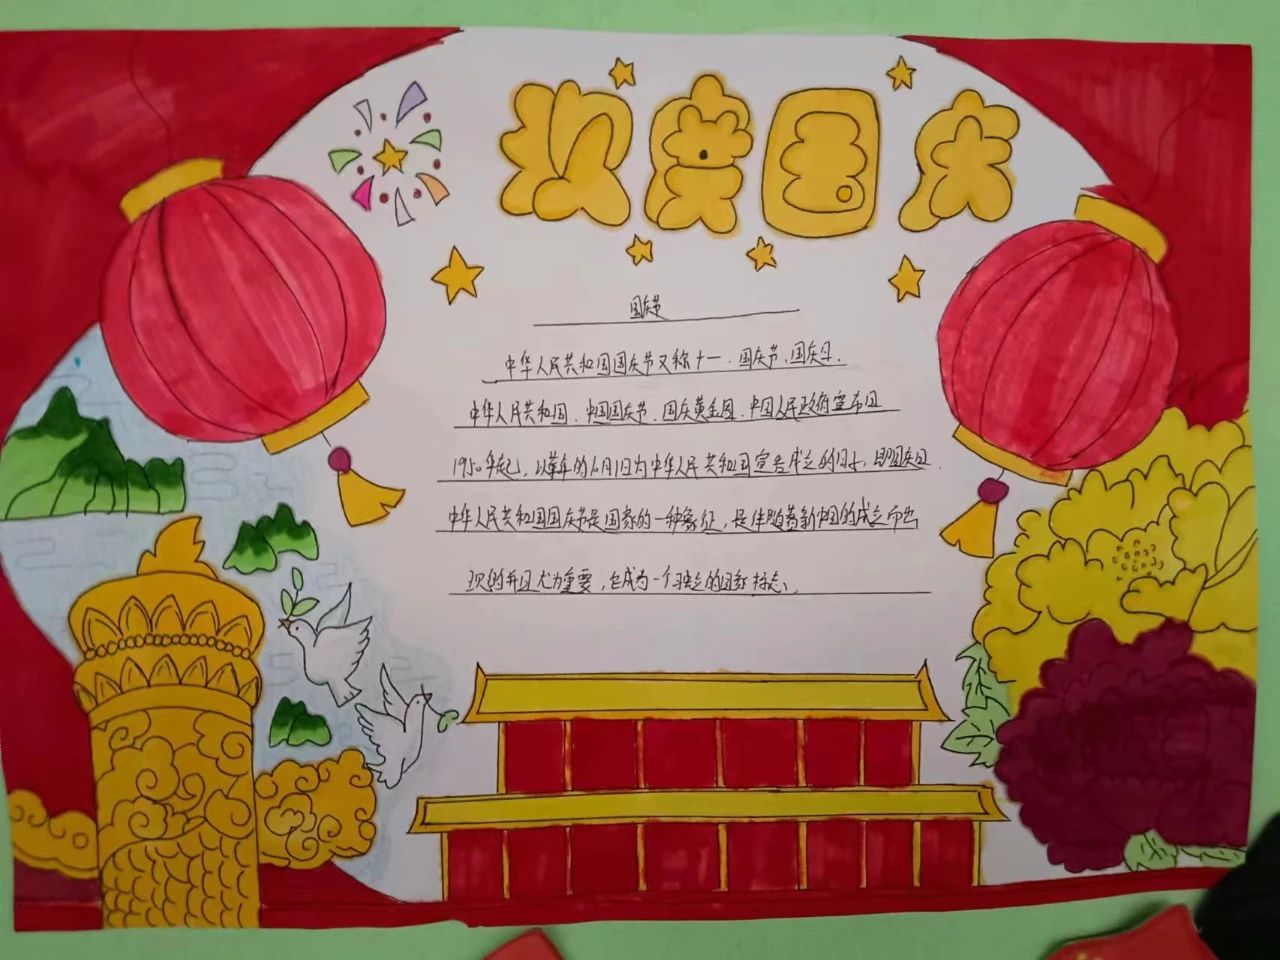 欢赏国庆
国庆节
中华人民共和国国庆节又称十一、国庆节、国庆日、
中华人民共和国、中国国庆节、国庆黄金周、中国人民政府宣布自
1950年起，以每年的10月1日为中华人民共和国宣告成立的日子，即国庆日.
中华人民共和国国庆节是国家的一种象征，是伴随着新中国的成立而出
现的并且尤为重要，它成为一个独立的国家标志、